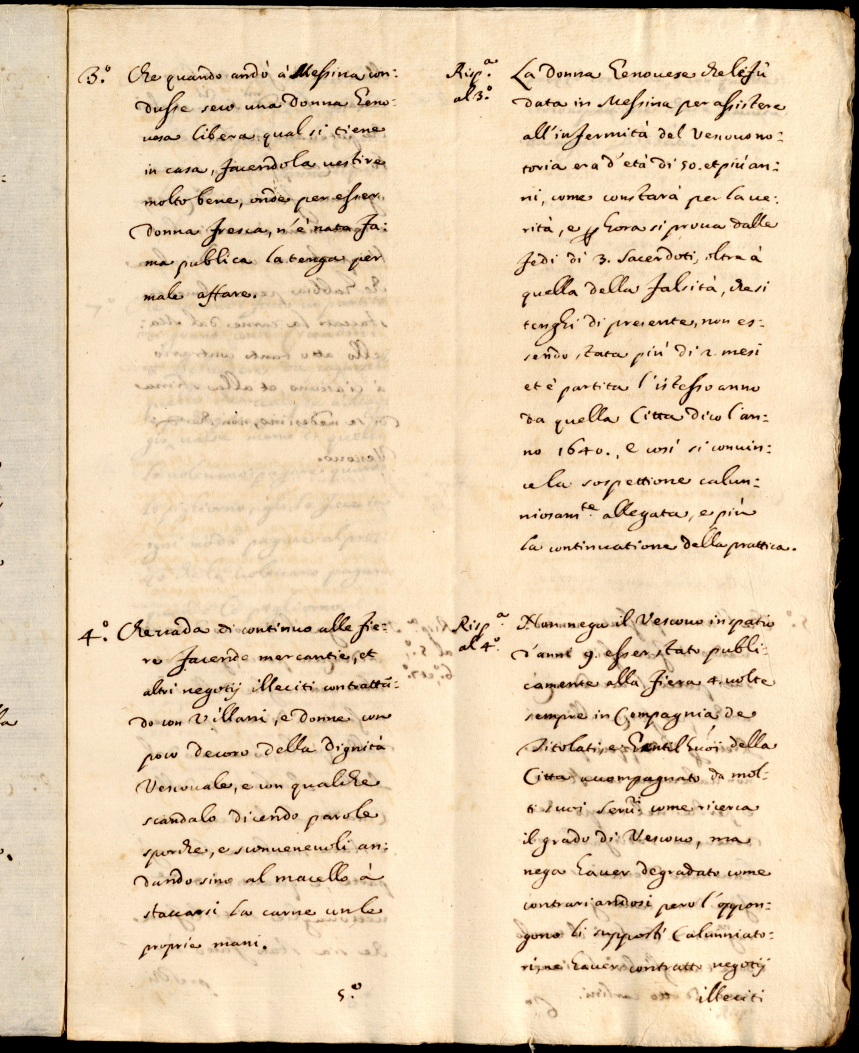 3.º Che quando andò à Messina con:
dusse seco una donna Geno:
vesa libera qual si tiene
in casa, facendola vestire
molto bene, onde per esser
donna fresca, n'è nata fa:
ma publica la tenga per
male affare.
Risp.ª
al 3.º
La donna Genovese che li fù
data in Messina per assistere
all'infermità del Vescovo no:
toria era d'età di 50. et più an:
ni, come constarà per la ve:
rità, e hora si prova dalle
fedi di 3. Sacerdoti, oltre à
quella della falsità, che si
tenghi di presente, non es:
sendo stata più di 2 mesi
et è partita l'istesso anno
da quella Citta dico l'an:
no 1640., e così si convin:
ce la sospettione calun:
niosam.te allegata, e più
la continuatione della prattica.
4.º Che vada di continuo alle fie:
re facendo mercantie, et
altri negotij illeciti contrattã:
do con Villani, e donne con
poco decoro della Dignità
Vescovale, e con qualche
scandalo dicendo parole
sporche, e sconvenevoli an:
dando sino al macello à
staccarsi la carne con le
proprie mani.
5.º
Risp.ª
al 4.º
Non nega il Vescovo in spatio
d'anni 9. esser stato publi:
camente alla fiera 4. volte
sempre in Compagnia de
Titolati, e Gentilhuoĩ della
Citta accompagnato da mol:
ti suoi Serviⁱ come ricerca
il grado di Vescovo, ma
nega haver degradato come
contrariandosi però l'oppon:
gono li supposti Calunniato:
ri, ne haver contratto negotij
illeciti